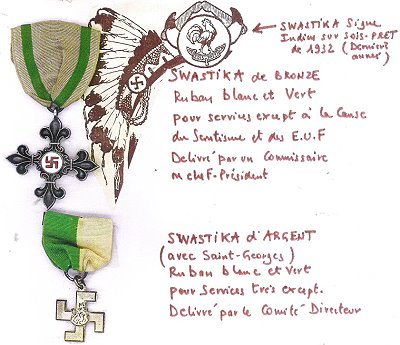 SWASTIKA Signe
Indien sur SOIS-PRET
de 1932 (Derniers
année)
SWASTIKA de BRONZE
Ruban blanc et Vert
pour services except à la Cause
du Scutisme et des E.U.F
Delivré par un Commissaire
en cheF-Président
SWASTIKA d'ARGENT
(avec Saint-Georges)
Ruban blanc et Vert
pour Services très except.
Delivré par le Comité Directeur